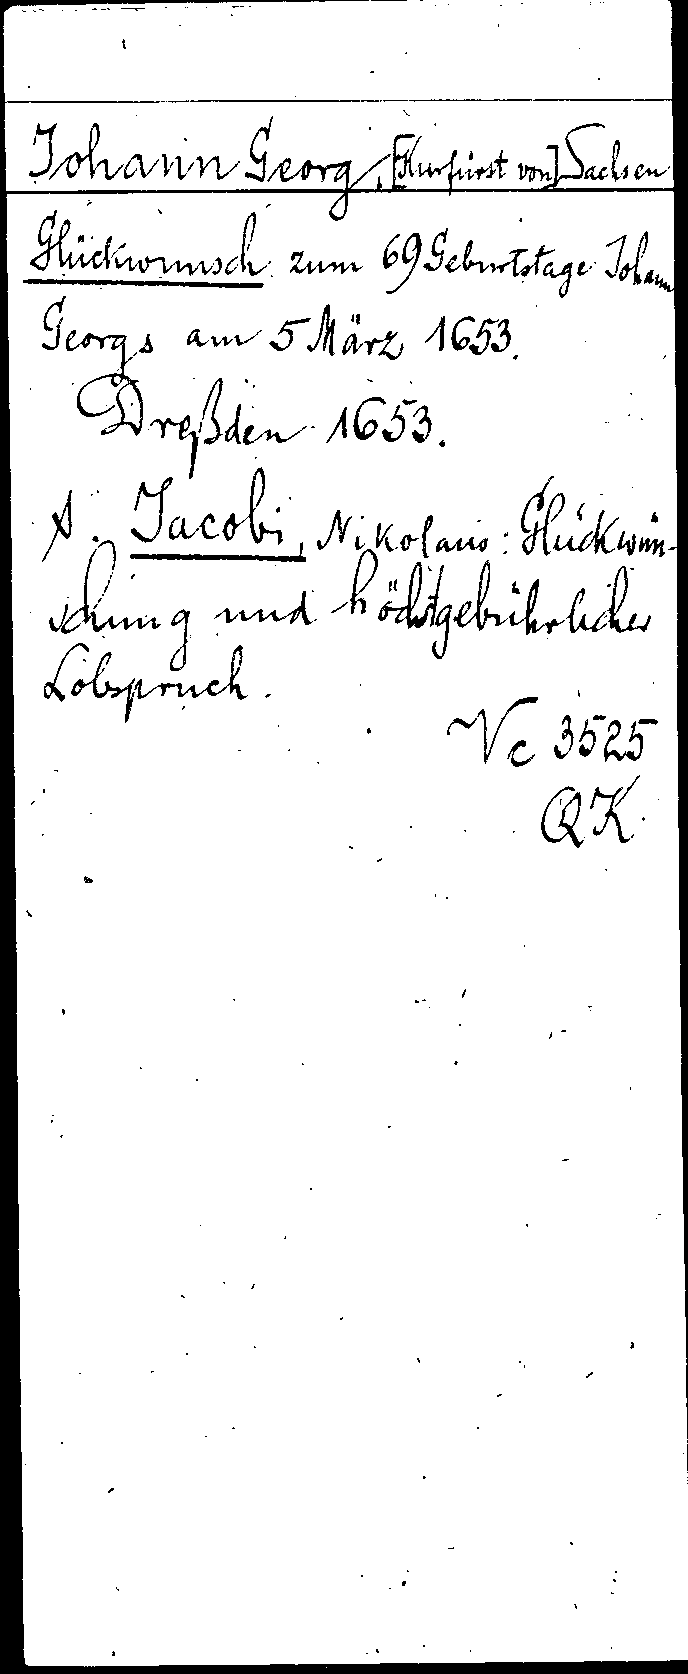 Johann Georg, [Kurfürst von] Sachsen
Glückwunsch zum 69 Geburtstage Johann
Georgs am 5 März 1653.
Dreßden 1653.
s. Jacobi, Nikolaus: Glückwün-
schung und höchstgebührlicher
Lobspruch.
Vc 3525
QK